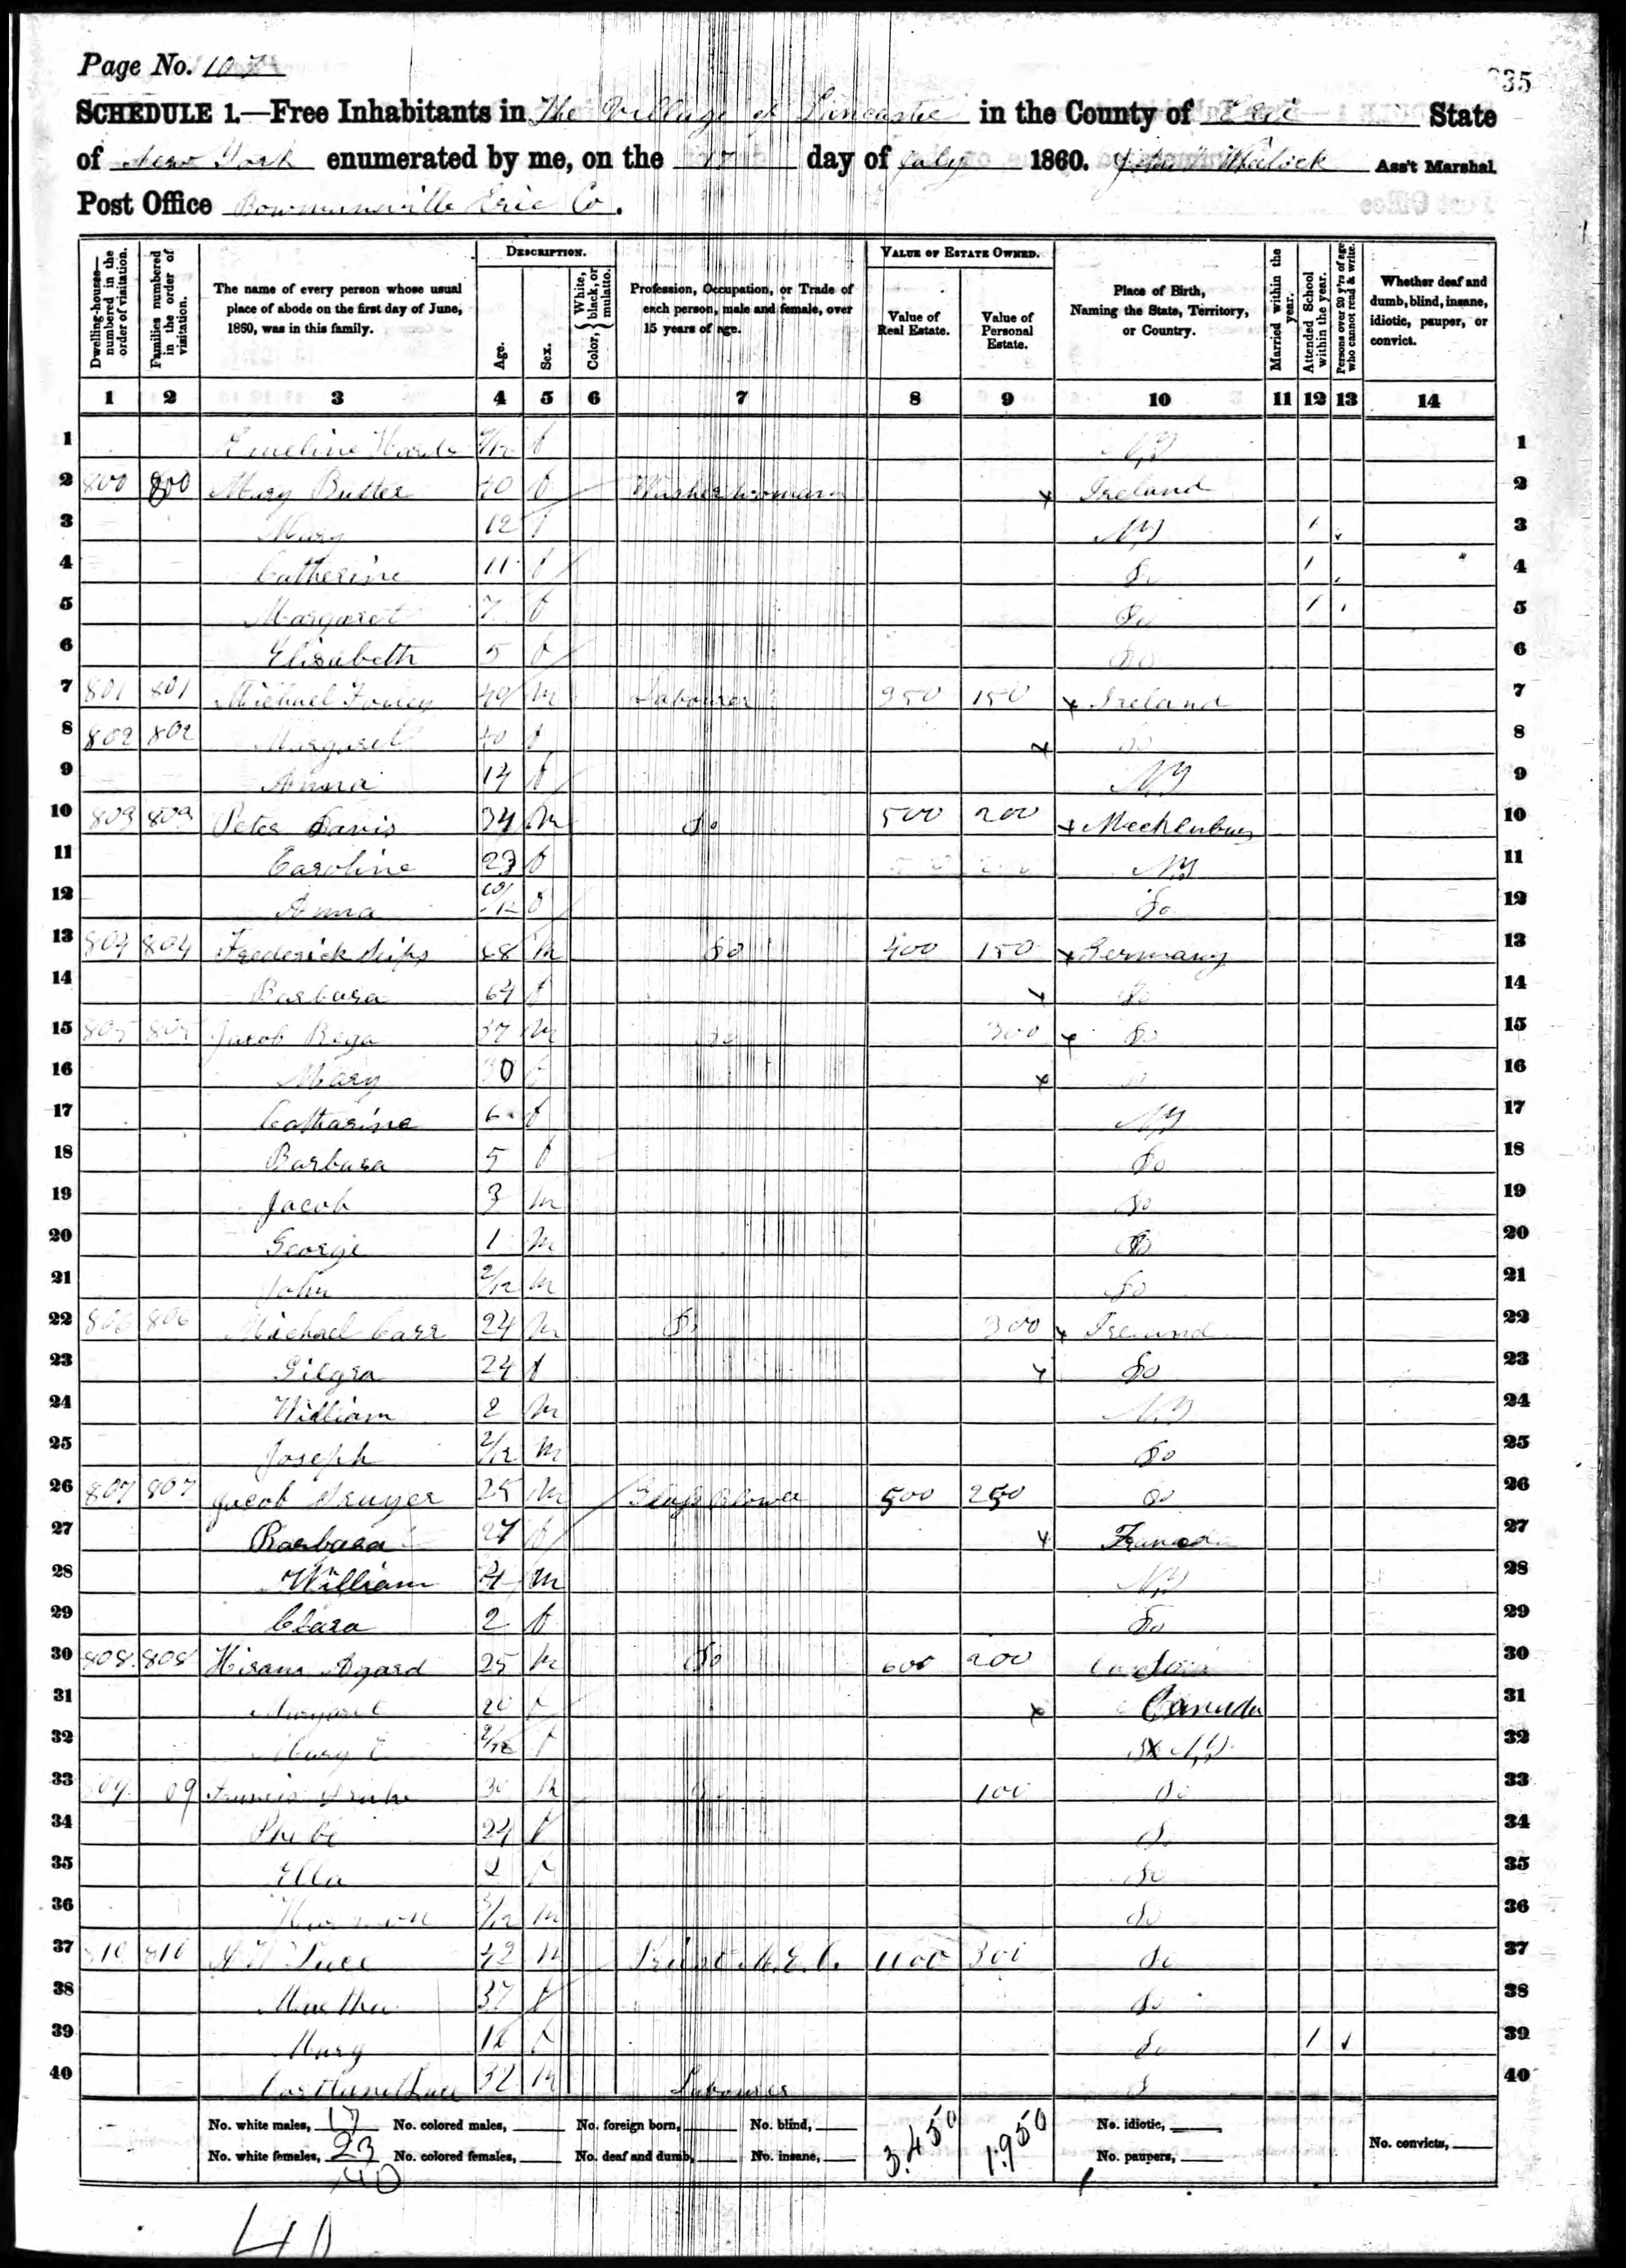 Page No. 107
35
SCHEDULE 1.—Free Inhabitants in The Village of Lancaster in the County of Erie State
of New York enumerated by me, on the 17 day of July 1860. Ass't Marshal.
Post Office Bowmansville Erie Co.
Dwelling-houses—numbered in the order of visitation.
Families numbered in the order of visitation.
The name of every person whose usual place of abode on the first day of June, 1860, was in this family.
DESCRIPTION.
Age.
Sex.
Color, { White, black, or mulatto.
Profession, Occupation, or Trade of each person, male and female, over 15 years of age.
VALUE OF ESTATE OWNED.
Value of Real Estate.
Value of Personal Estate.
Place of Birth, Naming the State, Territory, or Country.
Married within the year.
Attended School within the year.
Persons over 20 y'rs of age who cannot read & write.
Whether deaf and dumb, blind, insane, idiotic, pauper, or convict.
1 2 3 4 5 6 7 8 9 10 11 12 13 14
1 Emeline f N.Y 1
2 800 800 Mary Butler 40 f Washerwoman x Ireland 2
3 Mary 12 f N.Y 1 3
4 Catherine 11 f Do 1 4
5 Margaret 7 f Do 1 5
6 Elisabeth 5 f Do 6
7 801 801 Michael 40 m Labourer 350 150 x Ireland 7
8 802 802 Margaret 40 f x Do 8
9 Anna 14 f N.Y 9
10 803 803 Peter Davis 34 m Do 500 200 x Mecklenburg 10
11 Caroline 23 f N.Y 11
12 Anna f Do 12
13 804 804 Frederick 68 m Do 400 150 x Germany 13
14 Barbara 64 f x Do 14
15 805 805 Jacob Rega 37 m Do 300 x Do 15
16 Mary 30 f x Do 16
17 Catharine 6 f N.Y 17
18 Barbara 5 f Do 18
19 Jacob 3 m Do 19
20 George 1 m Do 20
21 John 2/12 m Do 21
22 806 806 Michael Carr 24 m Do 300 x Ireland 22
23 24 f x Do 23
24 William 2 m N.Y 24
25 Joseph 2/12 m Do 25
26 807 807 Jacob 25 m Glass Blower 500 250 Do 26
27 Barbara 27 f x 27
28 William 4 m N.Y 28
29 Clara 2 f Do 29
30 808 808 Hiram Agard 25 m Do 600 200 30
31 Margaret 20 f x Canada 31
32 Mary E f N.Y 32
33 809 09 Francis 30 m Do 100 Do 33
34 Phebe 24 f Do 34
35 Ella 2 f Do 35
36 m Do 36
37 810 810 A W Luce 42 m Priest M.E.C. 1100 300 Do 37
38 Martha 37 f Do 38
39 Mary 12 f Do 1 39
40 32 m Labourer 40
No. white males, 17 No. colored males, No. foreign born, No. blind, 3.450 1.950 No. idiotic,
No. white females, 23 No. colored females, No. deaf and dumb, No. insane, No. paupers, No. convicts,
40
40